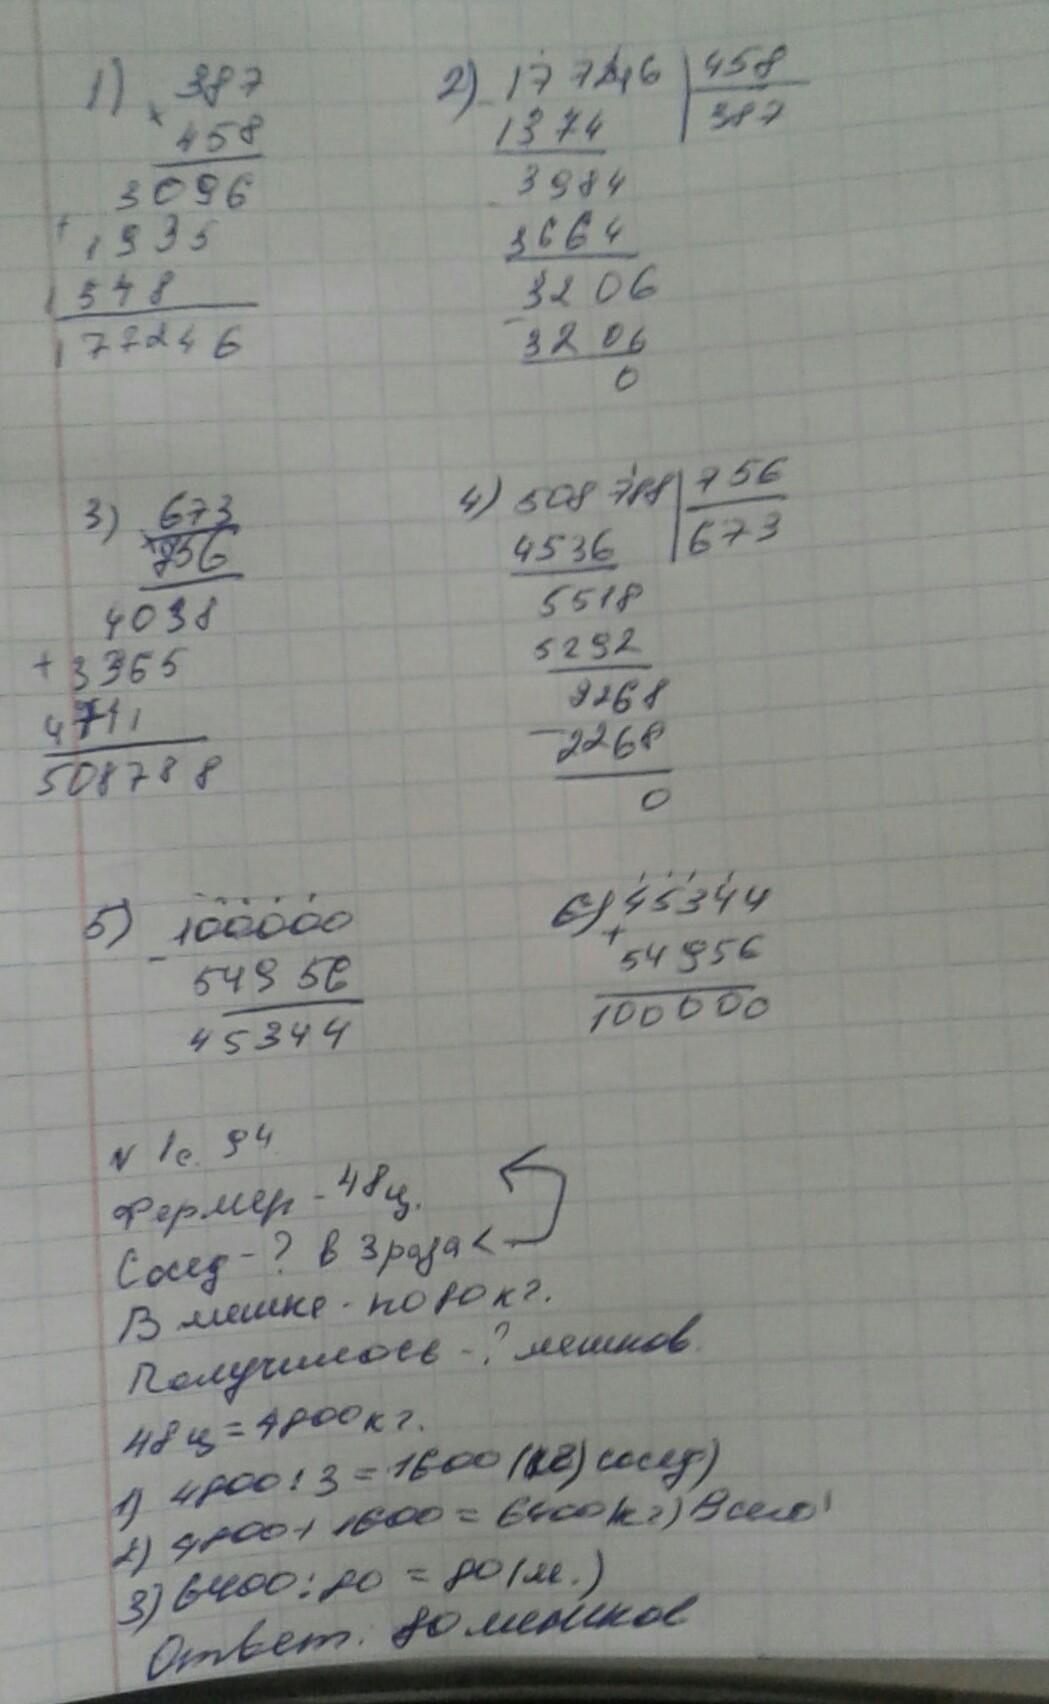 1) 387
× 458
3096
+ 1935
1548
177246
2) 177246 | 458
- 1374 | 387
3984
- 3664
3206
- 3206
0
3) 673
× 756
4038
+ 3365
4711
508788
4) 508788 | 756
4536 | 673
5518
5292
2268
- 2268
0
5) - 100000
54956
45344
6) 45344
+ 54956
100000
N 1 с. 94
Фермер - 48 ц.
Сосед - ? в 3 раза <
В мешке - по 80 кг.
Получилось - ? мешков.
48 ц = 4800 кг.
1) 4800 : 3 = 1600 (кг) сосед)
2) 4800 + 1600 = 6400 (кг) Всего
3) 6400 : 80 = 80 (м.)
Ответ: 80 мешков